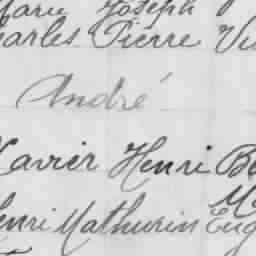 Marie Joseph
Charles Pierre
André
Xavier Henri
Henri Mathurin Eug